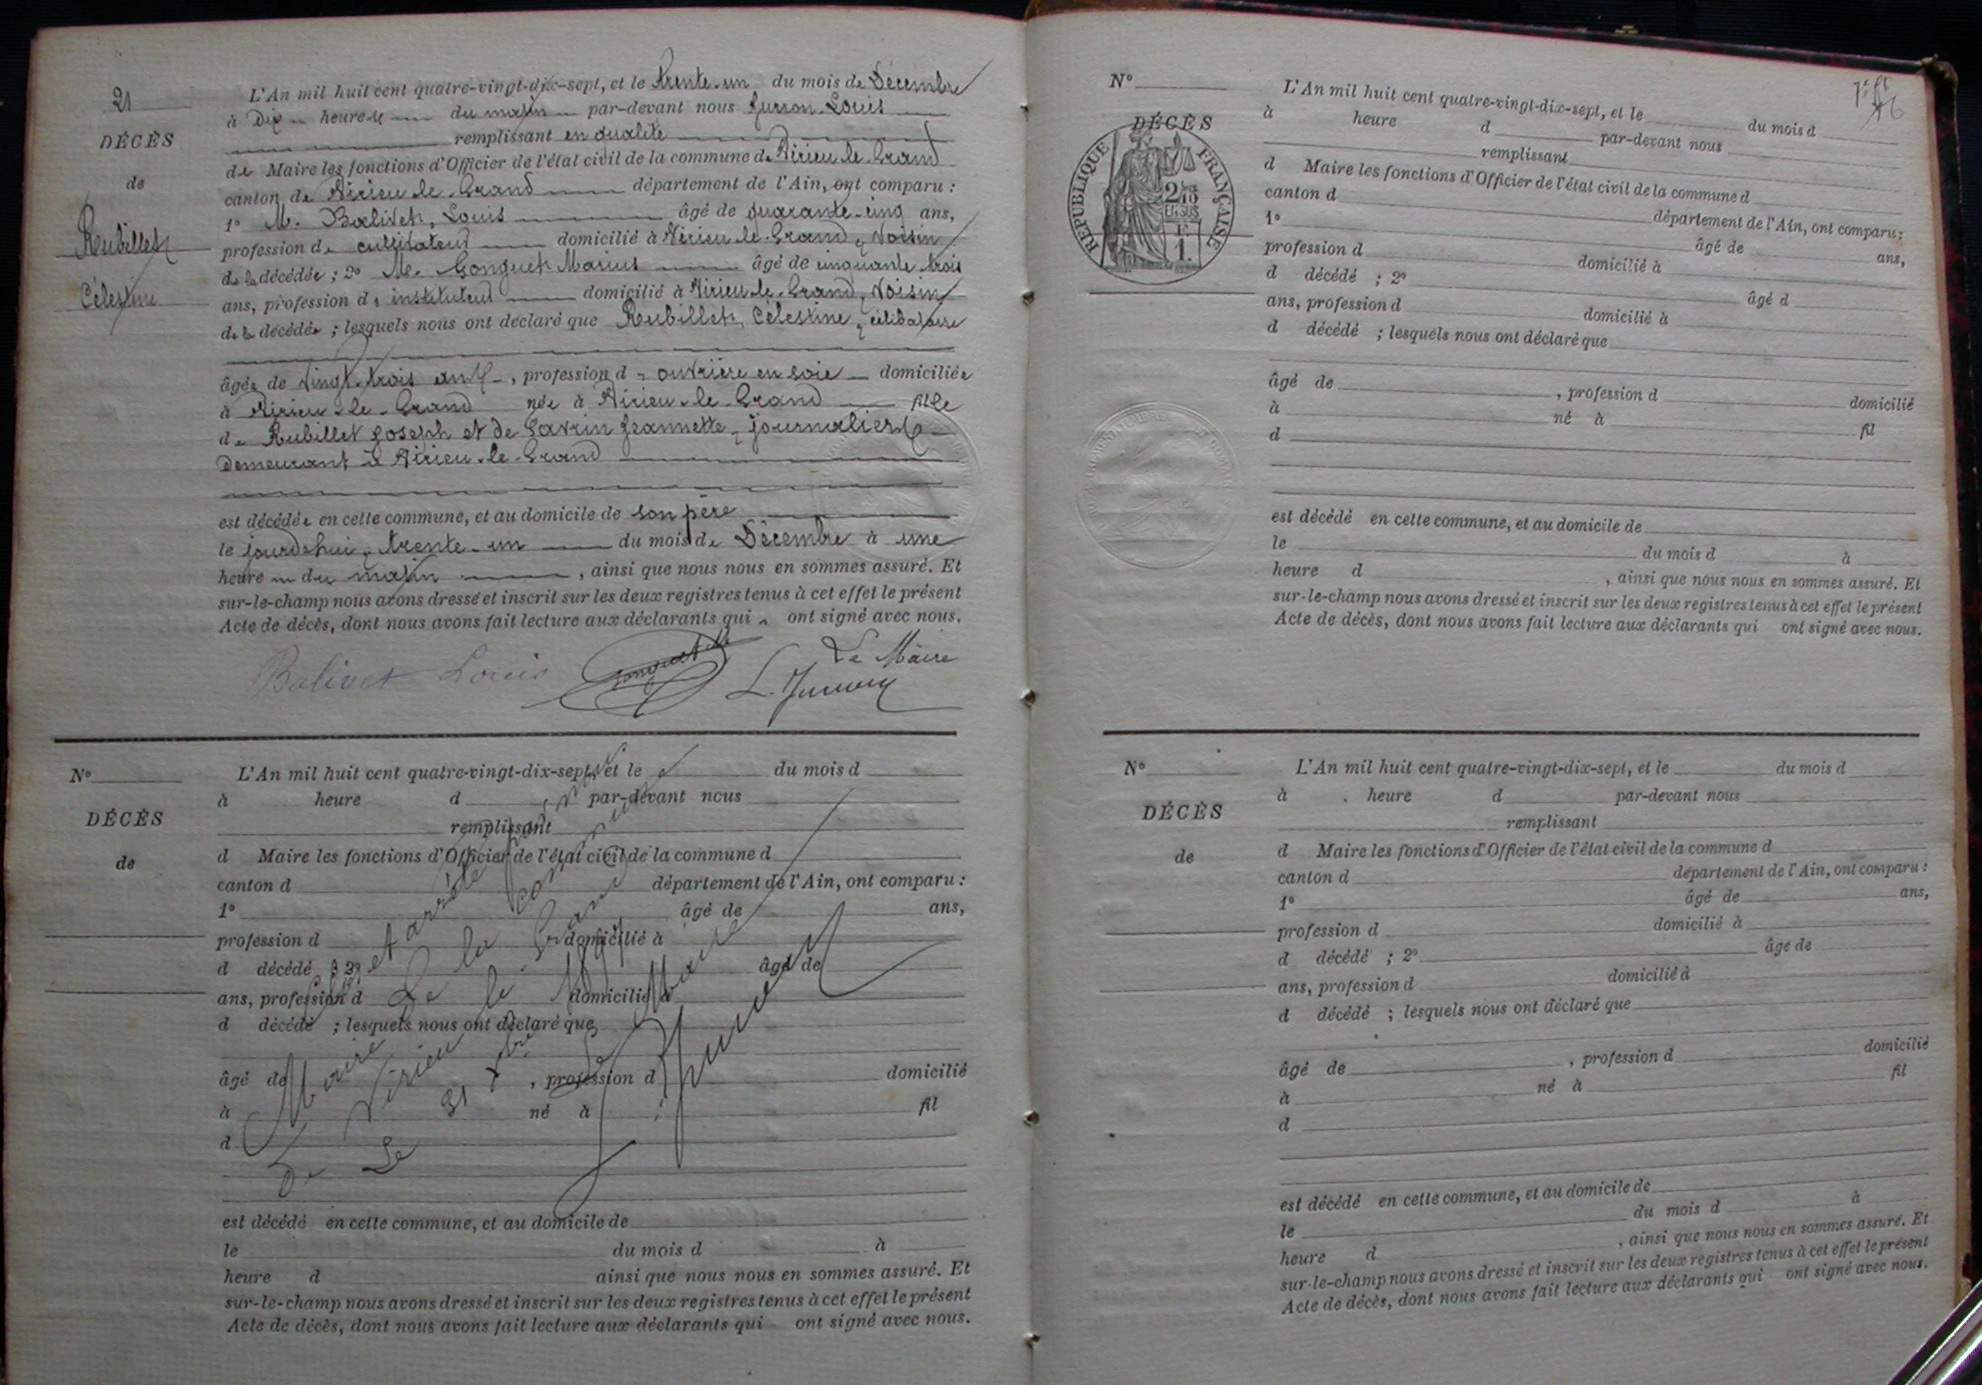 21
DÉCÈS
de
Rubillet
Célestine
L'An mil huit cent quatre-vingt-dix-sept, et le trente-un du mois de Décembre
à Dix heures du matin par-devant nous Louis
remplissant en qualité
de Maire les fonctions d'Officier de l'état civil de la commune de Virieu-le-Grand
canton de Virieu-le-Grand département de l'Ain, ont comparu :
1° M. Balivet, Louis âgé de quarante-cinq ans,
profession de cultivateur domicilié à Virieu-le-Grand, voisin
de la décédée ; 2° M. Gonguet Marius âgé de cinquante-trois
ans, profession d'instituteur domicilié à Virieu-le-Grand, voisin
de la décédée ; lesquels nous ont déclaré que Rubillet, Célestine, célibataire
âgée de vingt-trois ans, profession d'ouvrière en soie domiciliée
à Virieu-le-Grand née à Virieu-le-Grand fille
de Rubillet Joseph et de Savrin Jeannette, journaliers
Demeurant à Virieu-le-Grand
est décédée en cette commune, et au domicile de son père
le jourdehui, trente-un du mois de Décembre à une
heure du matin, ainsi que nous nous en sommes assuré. Et
sur-le-champ nous avons dressé et inscrit sur les deux registres tenus à cet effet le présent
Acte de décès, dont nous avons fait lecture aux déclarants qui ont signé avec nous.
Balivet Louis Gonguet Le Maire
N°
DÉCÈS
de
L'An mil huit cent quatre-vingt-dix-sept, et le du mois d
à heure d par-devant nous
remplissant
d Maire les fonctions d'Officier de l'état civil de la commune d
canton d département de l'Ain, ont comparu :
1° âgé de ans,
profession d domicilié à
d décédé ; 2° âgé de
ans, profession d domicilié à
d décédé ; lesquels nous ont déclaré que
âgé de , profession d domicilié
à né à fil
d
est décédé en cette commune, et au domicile de
le du mois d à
heure d ainsi que nous nous en sommes assuré. Et
sur-le-champ nous avons dressé et inscrit sur les deux registres tenus à cet effet le présent
Acte de décès, dont nous avons fait lecture aux déclarants qui ont signé avec nous.
et arrêté par nous
Maire de la commune
de Virieu-le-Grand
Le 31 Xbre
Le Maire
N°
DÉCÈS
RÉPUBLIQUE FRANÇAISE
2/10
EN SUS
1
L'An mil huit cent quatre-vingt-dix-sept, et le du mois d
à heure d par-devant nous
remplissant
d Maire les fonctions d'Officier de l'état civil de la commune d
canton d département de l'Ain, ont comparu :
1° âgé de ans,
profession d domicilié à
d décédé ; 2° âgé d
ans, profession d domicilié à
d décédé ; lesquels nous ont déclaré que
âgé de , profession d domicilié
à né à fil
d
est décédé en cette commune, et au domicile de
le du mois d à
heure d , ainsi que nous nous en sommes assuré. Et
sur-le-champ nous avons dressé et inscrit sur les deux registres tenus à cet effet le présent
Acte de décès, dont nous avons fait lecture aux déclarants qui ont signé avec nous.
N°
DÉCÈS
de
L'An mil huit cent quatre-vingt-dix-sept, et le du mois d
à heure d par-devant nous
remplissant
d Maire les fonctions d'Officier de l'état civil de la commune d
canton d département de l'Ain, ont comparu :
1° âgé de ans,
profession d domicilié à
d décédé ; 2° âgé de
ans, profession d domicilié à
d décédé ; lesquels nous ont déclaré que
âgé de , profession d domicilié
à né à fil
d
est décédé en cette commune, et au domicile de
le du mois d à
heure d , ainsi que nous nous en sommes assuré. Et
sur-le-champ nous avons dressé et inscrit sur les deux registres tenus à cet effet le présent
Acte de décès, dont nous avons fait lecture aux déclarants qui ont signé avec nous.